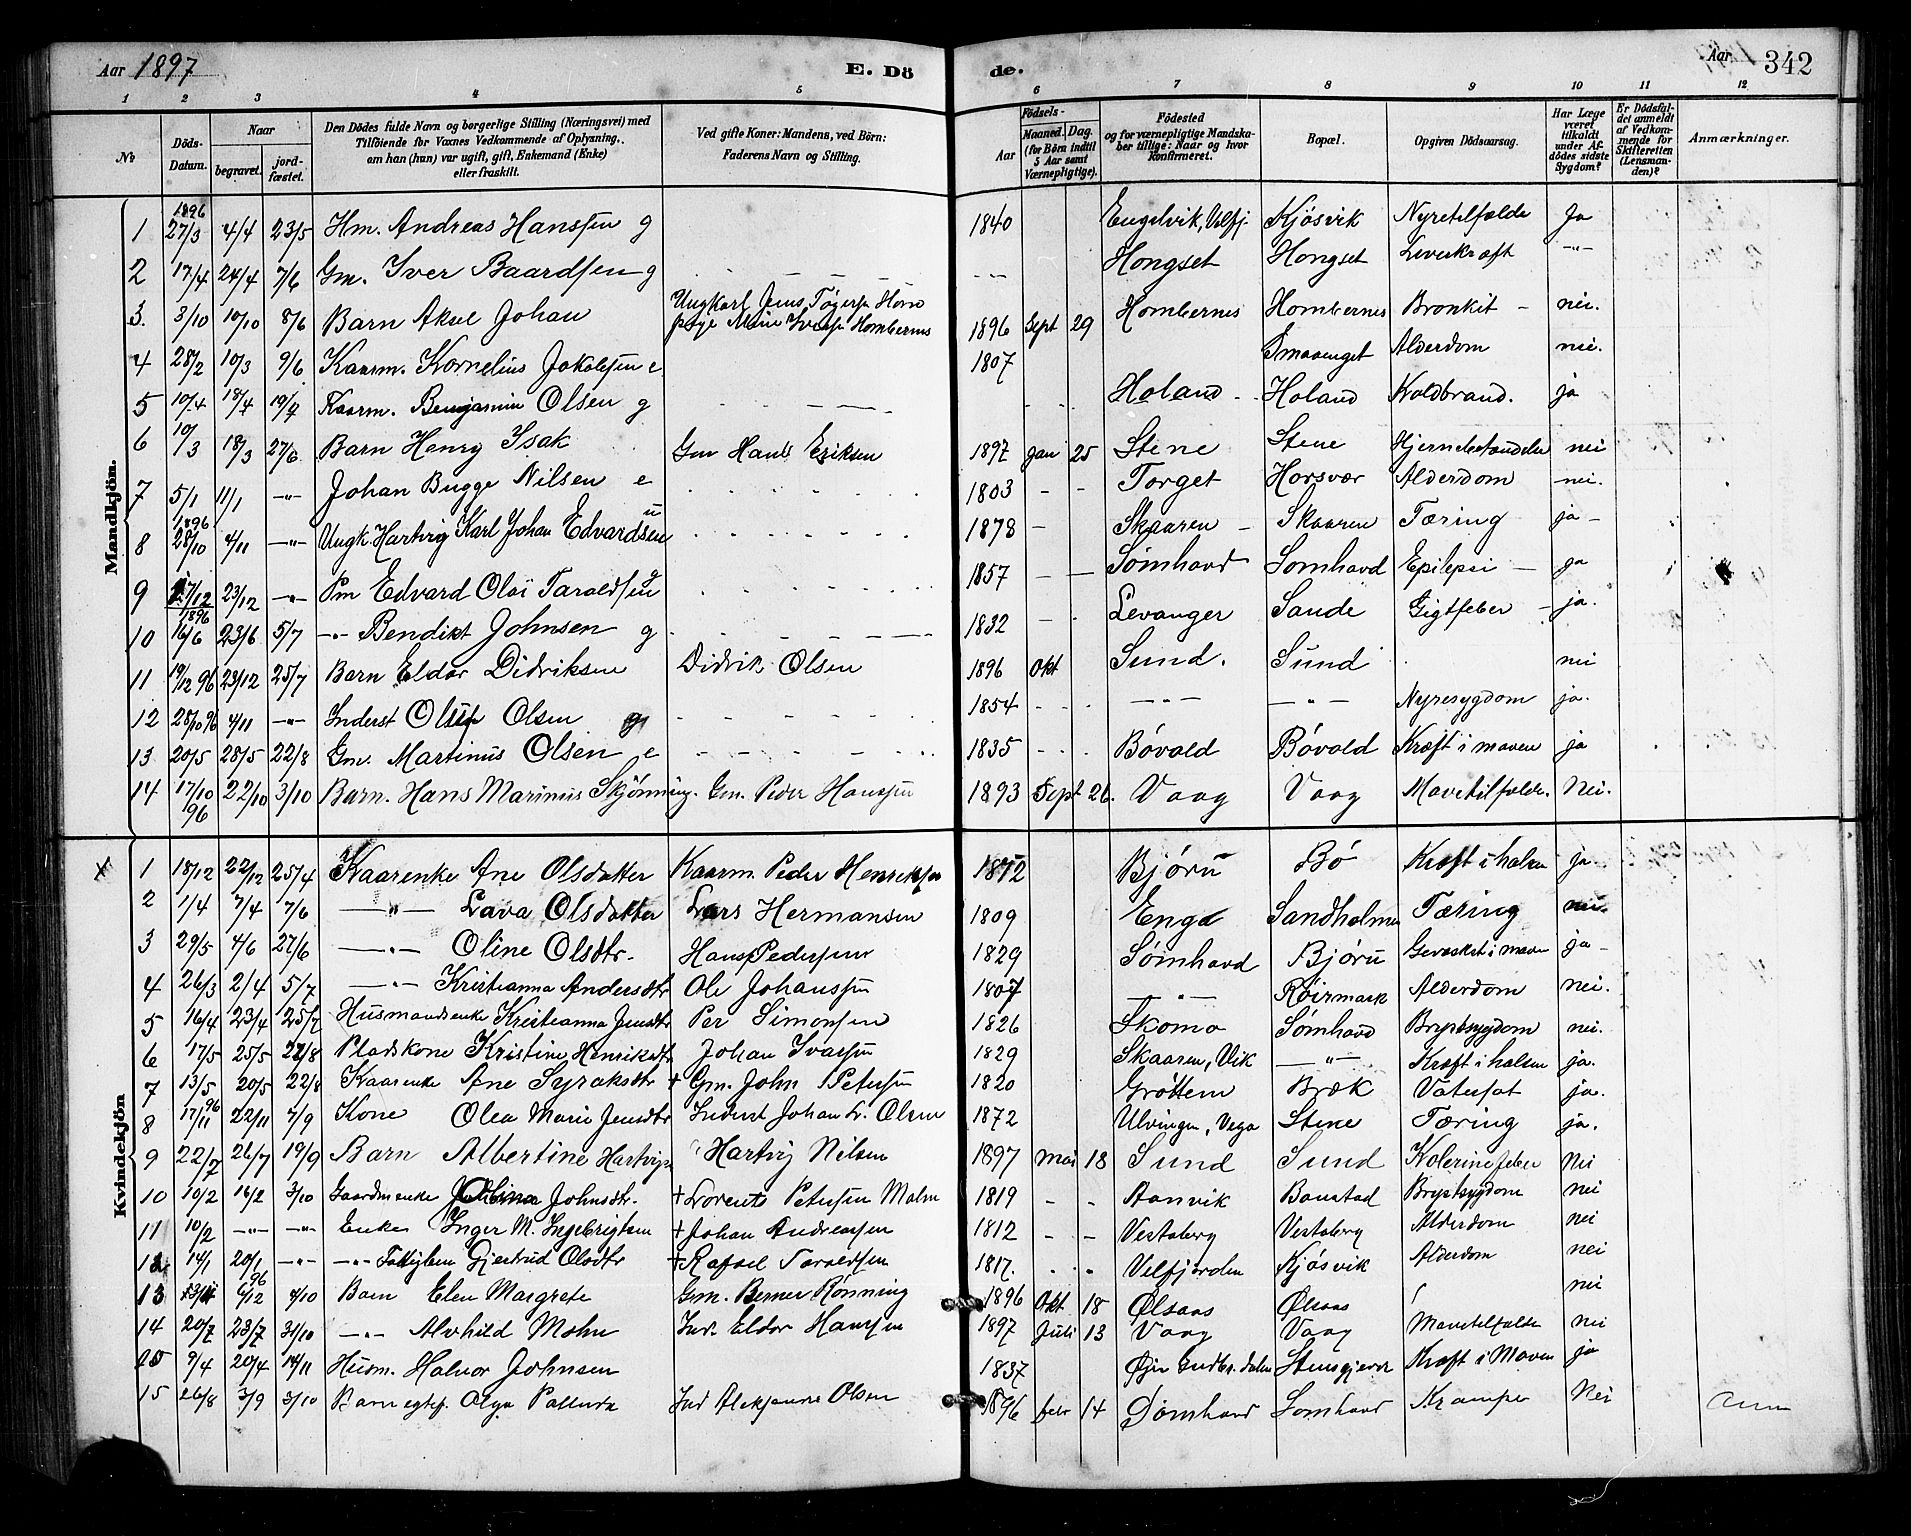 Aar 1897 E. Dö de. Aar 342
1 2 3 4 5 6 7 8 9 10 11 12
No Döds-Datum. Naar begravet. jord-fæstet. Den Dödes fulde Navn og borgerlige Stilling (Næringsvei) med Tilföiende för Voxnes Vedkommende af Oplysning, om han (hun) var ugift, gift, Enkemand (Enke) eller fraskilt. Ved gifte Koner: Mandens, ved Börn: Faderens Navn og Stilling. Födsels- Aar Maaned. Dag. (for Börn indtil 5 Aar samt Værnepligtige). Födested og for værnepligtige Mandska-ber tillige: Naar og hvor konfirmeret. Bopæl. Opgiven Dödsaarsag. Har Læge været tilkaldt under Af-dödes sidste Sygdom? Er Dödsfal-det anmeldt af Vedkom-mende for Skifteretten (Lensman-den)? Anmærkninger.
Mandkjön.
1 1896 27/3 4/4 23/5 Hm. Andreas Hanssen g 1840 Engelvik, Velfj. Kjösvik Nyretilfælde Ja
2 17/4 24/4 7/6 Gm. Iver Baardsen g Hongset Hongset Leverkræft -"-
3. 3/10 10/10 8/6 Barn Aksel Johan Ungkarl Jens Hornbernes 1896 Sept 29 Hornbernes Hornbernes Bronkit nei.
4 28/2 10/3 9/6 Kaarm. Kornelius Jakobsen e 1807 Smaaenget Alderdom nei.
5 10/4 18/4 19/4 Kaarm. Benjamin Olsen g Holand Holand Koldbrand. ja
6 10/3 18/3 27/6 Barn Henry Isak Gm Hans Eriksen 1897 Jan 25 Stene Stene Hjernebetændelse nei
7 5/1 11/1 -"- Johan Bugge Nilsen e 1803 Torget Horsvær Alderdom nei.
8 1896 28/10 4/11 -"- Ungk. Hartvig Karl Johan Edvardsen u 1878 Skaaren Skaaren Tæring ja
9 17/12 1896 23/12 -"- Pm Edvard Olai Taraldsen 1857 Sømhavd Somhavd Epilepsi ja
10 16/6 23/6 5/7 -"- Bendikt Johnsen g 1832 Levanger Sande Gigtfeber ja.
11 19/12 96 23/12 25/7 Barn Eldor Didriksen Didrik Olsen 1896 Okt Sund. Sund nei
12 28/10 96 4/11 -"- Inderst Oluf Olsen g 1854 -"- -"- Nyresygdom ja.
13 20/5 28/5 22/8 Gm. Martinus Olsen e 1835 Bóvald Bóvald Kræft i maven ja
14 17/10 96 22/10 3/10 Barn. Hans Marinus Skjønning. Gm. Peder Hanssen 1893 Sept 26. Vaag Vaag Mavetilfælde. Nei.
Kvindekjön
X 1 18/12 22/12 25/4 Kaarenke Ane Olsdatter Kaarm. Peder Henriksen 1812 Bjøru Bó Kræft i halsen ja
2 1/4 7/4 7/6 -"- Lava Olsdatter Lars Hermansen 1809 Enge Sandholmen Tæring nei.
3 29/5 4/6 27/6 -"- Oline Olsdtr. Hans Pedersen 1829 Sømhavd Bjøru Gevækst i maven ja
4 26/3 2/4 5/7 -"- Kristianna Andersdtr Ole Johanssen 1807 -"- Røirmark Alderdom nei.
5 16/4 23/4 25/7 Husmandsenke Kristianna Jensdtr Per Simonsen 1826 Skomo Sømhavd Brystsygdom nei.
6 17/5 25/5 22/8 Pladskone Kristine Henriksdtr Johan Ivarsen 1829 Skaaren, Vik -"- Kræft i halsen ja.
7 13/5 20/5 22/8 Kaarenke Ane Syraksdtr + Gm. John Petersen 1820 Grøttem Bræk Vatersot ja.
8 17/11 96 22/11 7/9 Kone Olea Marie Jensdtr Inderst Johan L. Olsen 1872 Ulvingen, Vega Stene Tæring ja.
9 22/7 26/7 19/9 Barn Albertine Hartvigs Hartvig Nilsen 1897 Mai 18 Sund Sund Kolerinefeber Nei
10 10/2 16/2 3/10 Gaardmenke Johnsdtr. + Lorents Petersen Malm 1819 Aanvik Baustad Brystsygdom nei
11 10/2 -"- -"- Enke Inger M. Ingebrigtsen + Johan Andreassen 1812 Vestaberg Vestaberg Alderdom nei
12 14/1 20/1 -"- -"- Gjertrud Olsdtr + Rafael Taraldsen 1817. Velfjorden Kjösvik Alderdom nei
13 96 6/12 4/10 Barn Elen Margrete Gm. Berner Rønning 1896 Okt 18 Ølsaas Ølsaas nei
14 20/7 23/7 31/10 -"- Alvhild Mohn Ind. Eldor Hanssen 1897 Juli 13 Vaag Vaag Mavetilfælde nei
15 9/4 20/4 14/11 Husm. Halvor Johnsen 1837 Kræft i Maven ja
15 26/8 3/9 3/10 Barn Olga Ind Olsen 1896 febr 14 Sømhavd Somhavd Krampe Nei